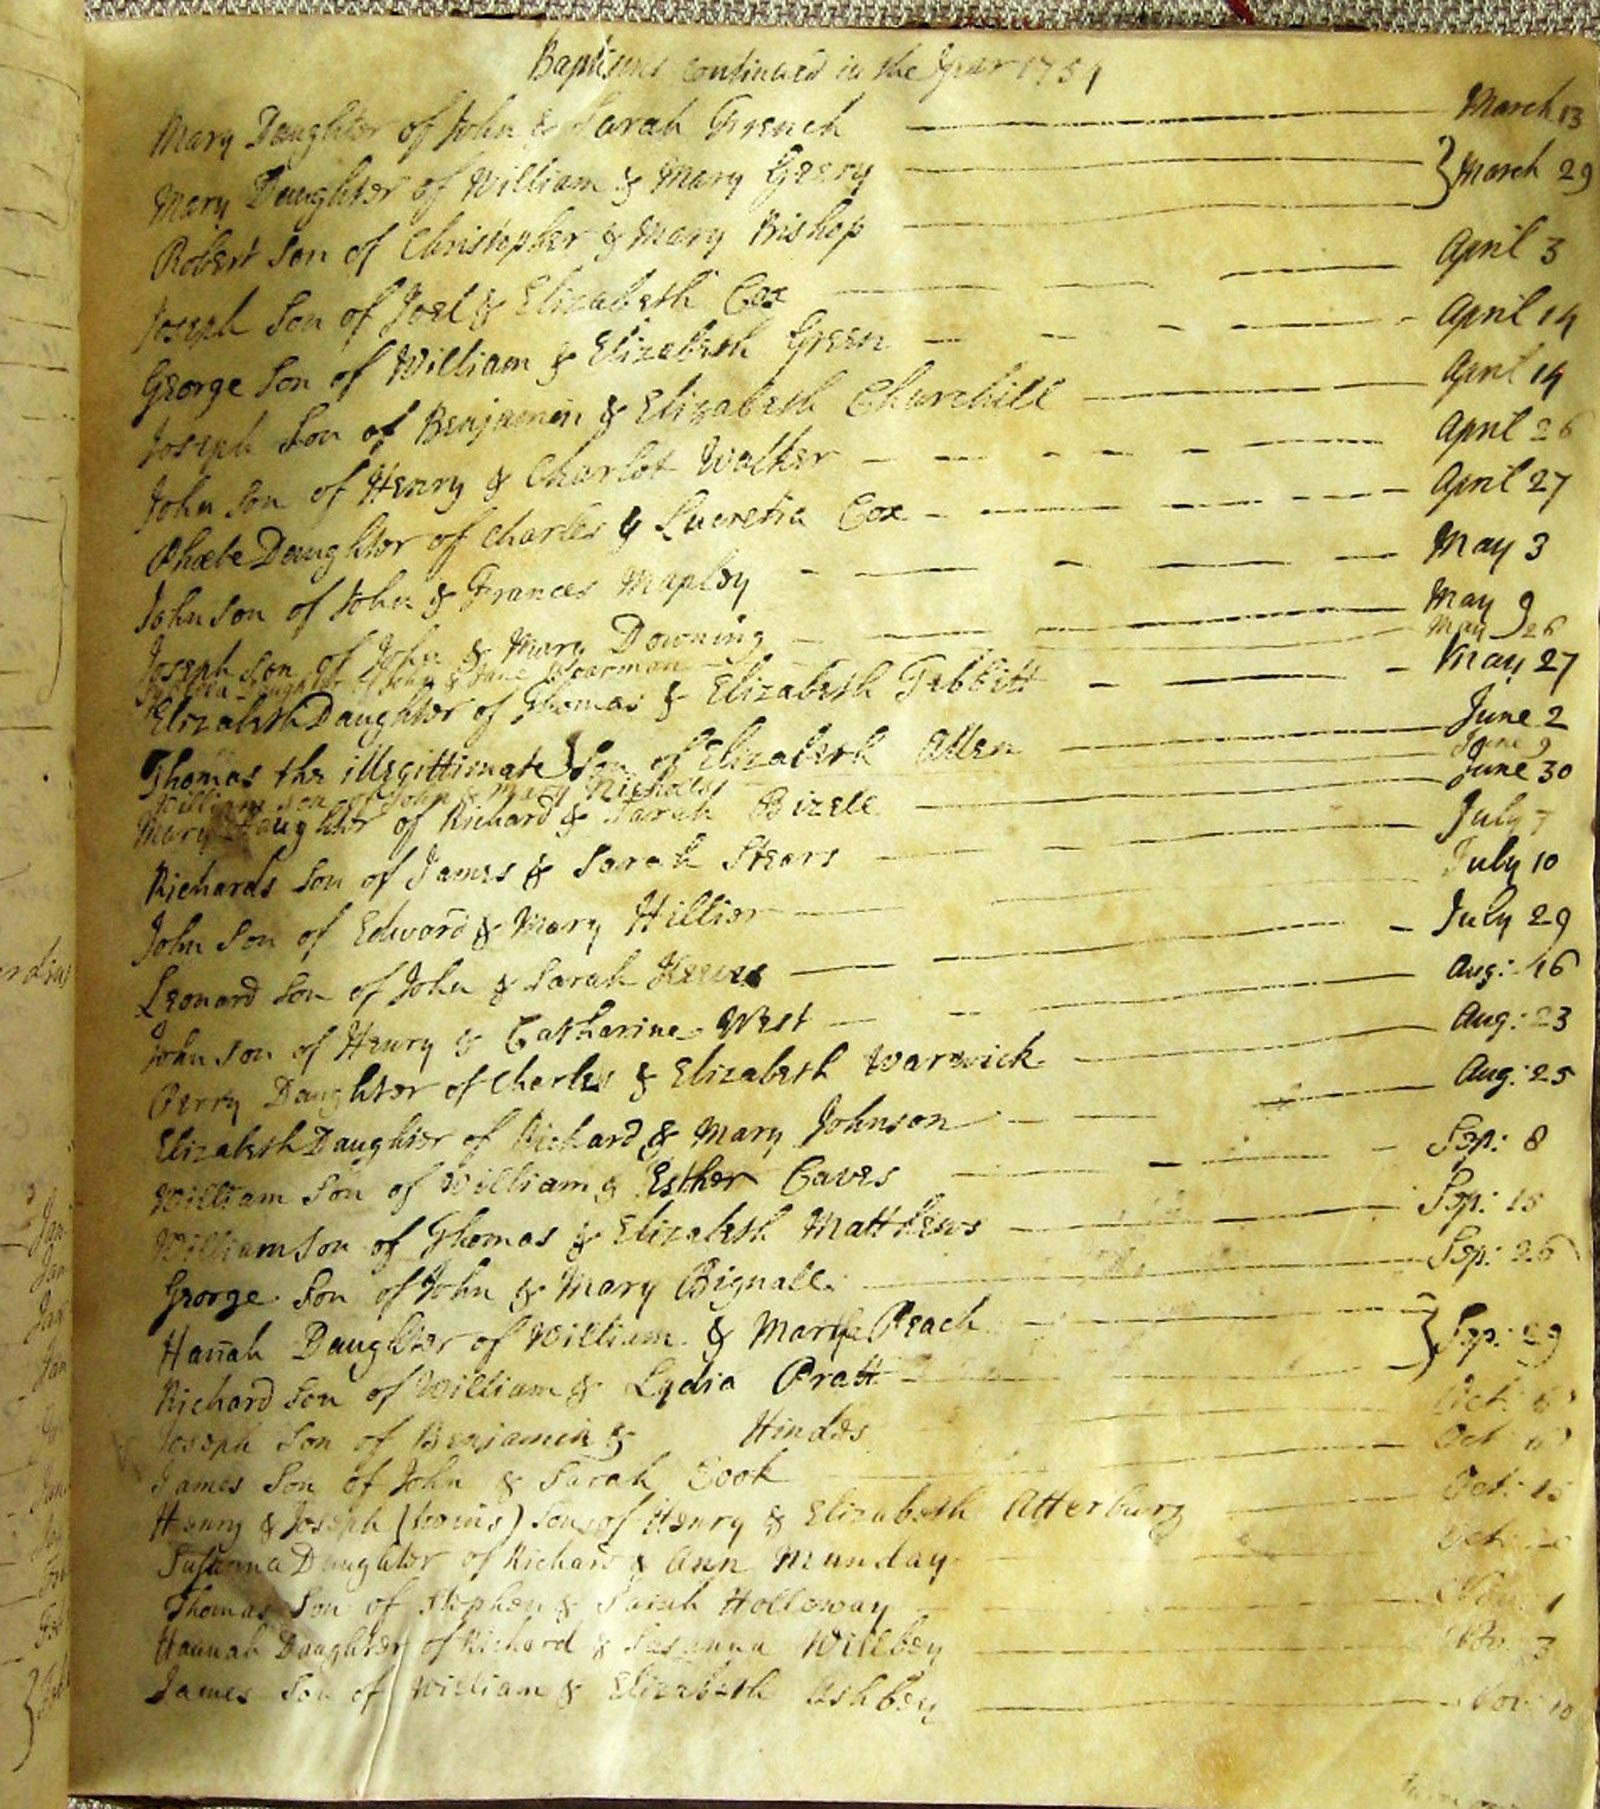 Baptisms continued in the Year 1754
Mary Daughter of John & Sarah French March 13
Mary Daughter of William & Mary Geery March 29
Robert Son of Christopher & Mary Bishop
Joseph Son of Joel & Elizabeth Cox April 3
George Son of William & Elizabeth Green April 14
Joseph Son of Benjamin & Elizabeth Churchill April 14
John Son of Henry & Charlot Walker April 26
Phœbe Daughter of Charles & Lucretia Cox April 27
John Son of John & Frances Mapley May 3
Joseph Son of John & Mary Downing May 9
Daughter of John & Jane May 26
Elizabeth Daughter of Thomas & Elizabeth Tebbitt May 27
Thomas the illegittimate Son of Elizabeth Allen June 2
William Son of John & Mary Nicholls June 9
Mary Daughter of Richard & Sarah Bizele June 30
Richard Son of James & Sarah Stears July 7
John Son of Edward & Mary Hillier July 10
Leonard Son of John & Sarah July 29
John Son of Henry & Catharine West Aug: 16
Perry Daughter of Charles & Elizabeth Warwick Aug: 23
Elizabeth Daughter of Richard & Mary Johnson Aug: 25
William Son of William & Esther Caves Sep: 8
William Son of Thomas & Elizabeth Matthews Sep: 15
George Son of John & Mary Bignall Sep: 26
Hañah Daughter of William & Martha Peach Sep: 29
Richard Son of William & Lydia Pratt
Joseph Son of Benjamin & Hindes Oct: 6
James Son of John & Sarah Cook Oct:
Henry & Joseph (twins) Sons of Henry & Elizabeth Atterbury Oct: 15
Susanna Daughter of Richard & Ann Munday Oct:
Thomas Son of Stephen & Sarah Holloway Nov: 1
Hannah Daughter of Richard & Susanna Willbey Nov: 3
James Son of William & Elizabeth Ashbey Nov: 10